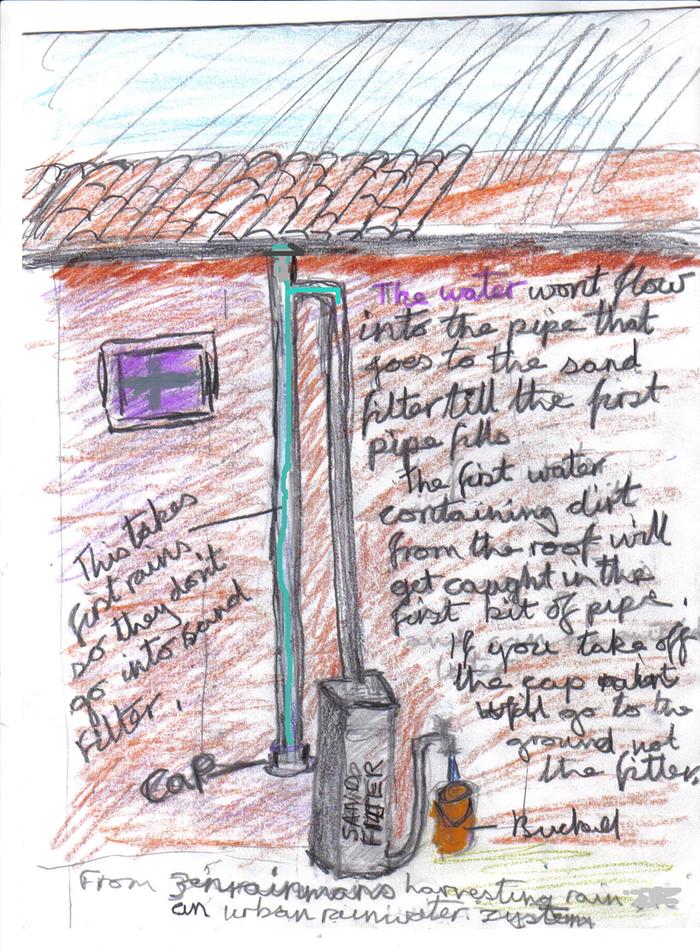 The water wont flow
into the pipe that
goes to the sand
filter till the first
pipe fills
The first water
containing dirt
from the roof will
get caught in the
first bit of pipe.
If you take off
the cap
will go to the
ground not
the filter.
This takes
first rains
so they don't
go into sand
filter.
Cap
SAND
FILTER
Bucket
From zenrainmans harvesting rain
an urban rainwater system